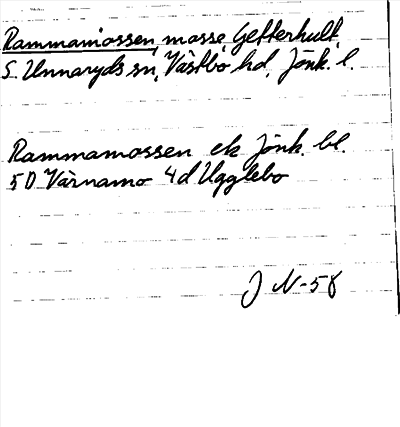 Rammamossen, mosse, Getterhult,
S. Unnaryds sn, Västbo hd, Jönk. l.
Rammamossen ek Jönk. bl.
5 D Värnamo 4d Ugglebo
J N-58